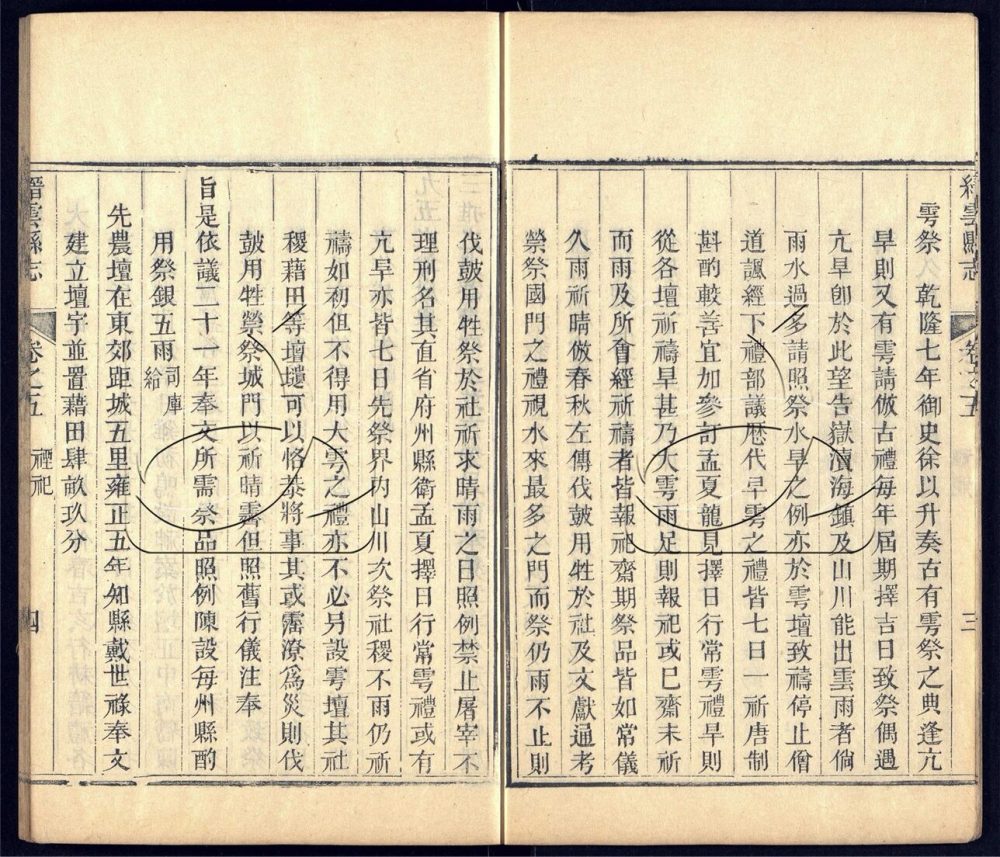 縉雲縣志
卷之五
三
雩祭 乾隆七年御史徐以升奏古有雩祭之典逢亢
旱則又有雩請倣古禮每年屆期擇吉日致祭偶遇
亢旱卽於此望告嶽瀆海鎮及山川能出雲雨者倘
雨水過多請照祭水旱之例亦於雩壇致禱停止僧
道諷經下禮部議歷代旱雩之禮皆七日一祈唐制
斟酌較善宜加參訂孟夏龍見擇日行常雩禮旱則
從各壇祈禱旱甚乃大雩雨足則報祀或已齋未祈
而雨及所會經祈禱者皆報祀齋期祭品皆如常儀
久雨祈晴倣春秋左傳伐鼓用牲於社及文獻通考
禜祭國門之禮視水來最多之門而祭仍雨不止則
伐鼓用牲祭於社祈求晴雨之日照例禁止屠宰不
理刑名其直省府州縣衛孟夏擇日行常雩禮或有
亢旱亦皆七日先祭界內山川次祭社稷不雨仍祈
禱如初但不得用大雩之禮亦不必另設雩壇其社
稷藉田等壇壝可以恪恭將事其或霪潦爲災則伐
鼓用牲禜祭城門以祈晴霽但照舊行儀注奉
旨是依議二十一年奉文所需祭品照例陳設每州縣酌
用祭銀五兩司庫給
先農壇在東郊距城五里雍正五年知縣戴世祿奉文
建立壇宇並置藉田肆畝玖分
縉雲縣志
卷之五 禋祀
四